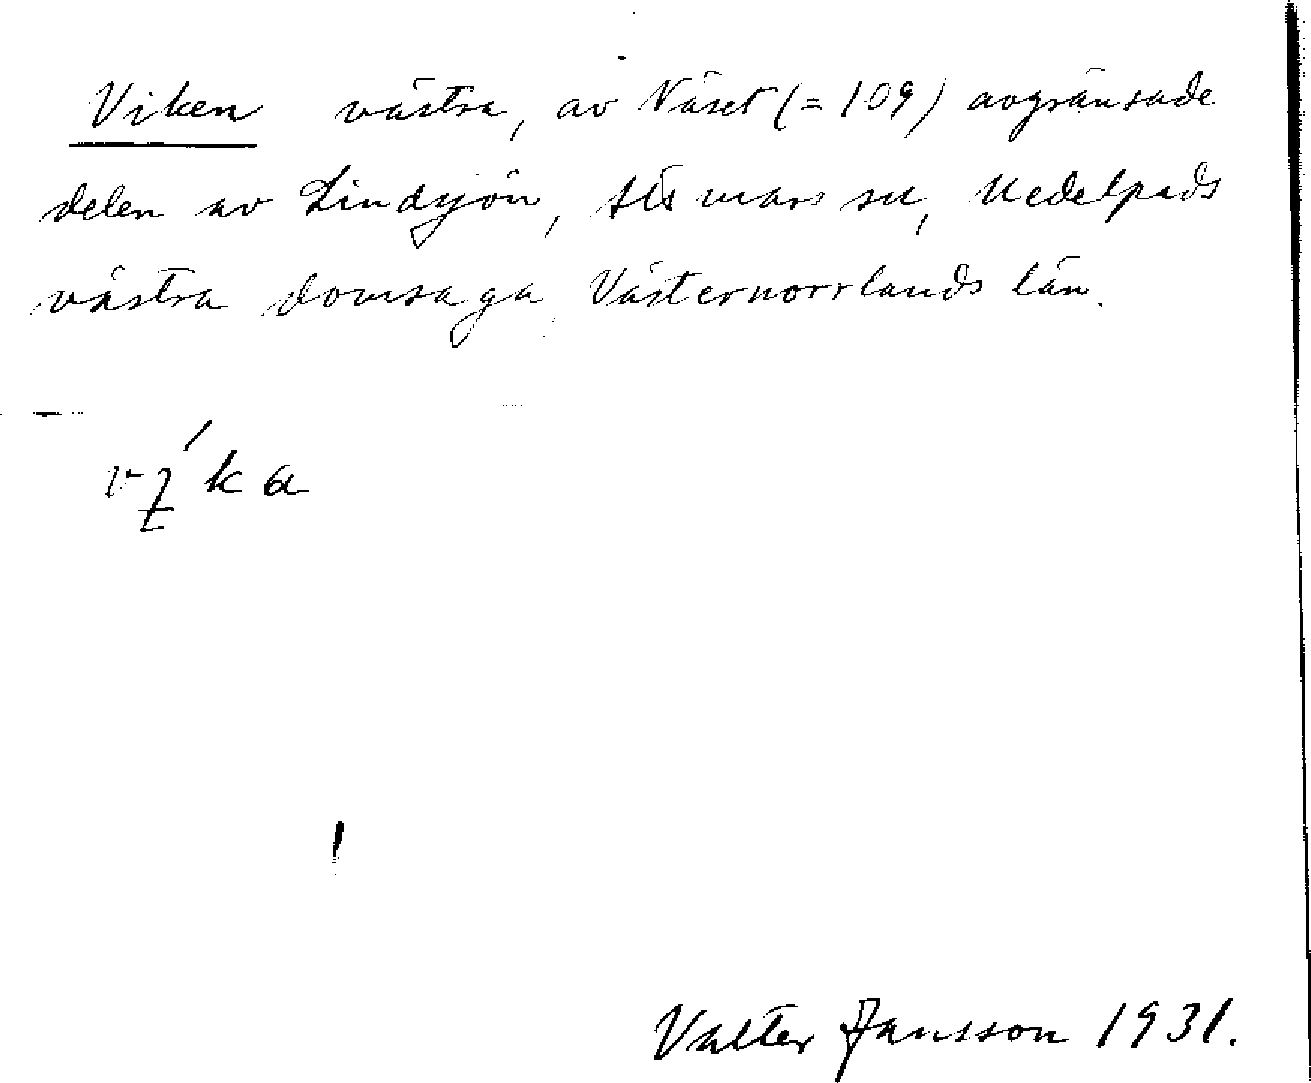 Viken västra, av Näset (=109) avgränsade
delen av Lindsjön, sn, Medelpads
västra domsaga Västernorrlands län.
Valter Jansson 1931.